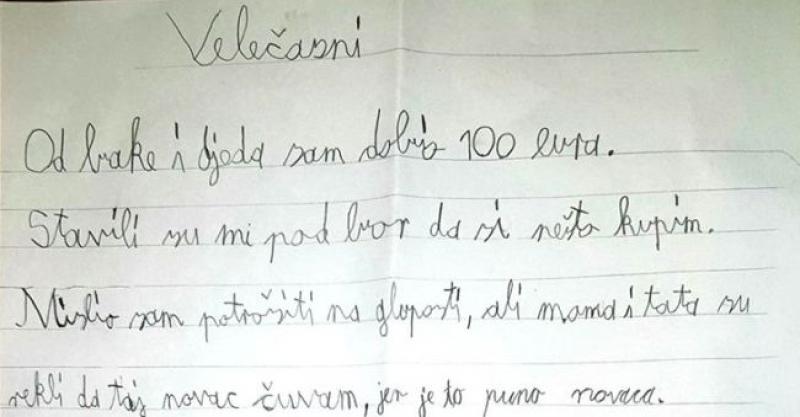 Velečasni
Od bake i djeda sam dobio 100 eura.
Stavili su mi pod bor da si nešto kupim.
Mislio sam potrošiti na gluposti, ali mama i tata su
rekli da taj novac čuvam, jer je to puno novaca.